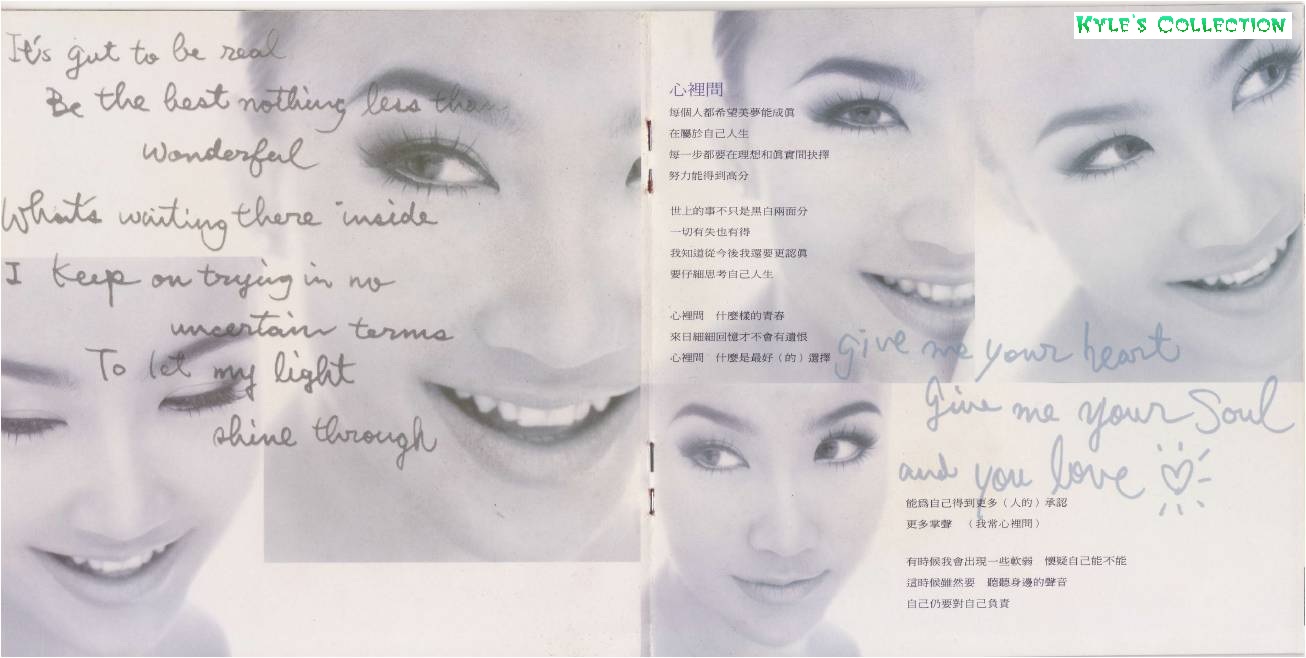 It's gut to be real
Be the best nothing less than
wonderful
What's waiting there inside
I keep on trying in no
uncertain terms
To let my light
shine through
KYLE'S COLLECTION
心裡問
每個人都希望美夢能成眞
在屬於自己人生
每一步都要在理想和眞實間抉擇
努力能得到高分
世上的事不只是黑白兩面分
一切有失也有得
我知道從今後我還要更認眞
要仔細思考自己人生
心裡問　什麼樣的青春
來日細細回憶才不會有遺恨
心裡問　什麼是最好（的）選擇
give me your heart
Give me your Soul
and you love
能爲自己得到更多（人的）承認
更多掌聲　（我常心裡問）
有時候我會出現一些軟弱　懷疑自己能不能
這時候雖然要　聽聽身邊的聲音
自己仍要對自己負責